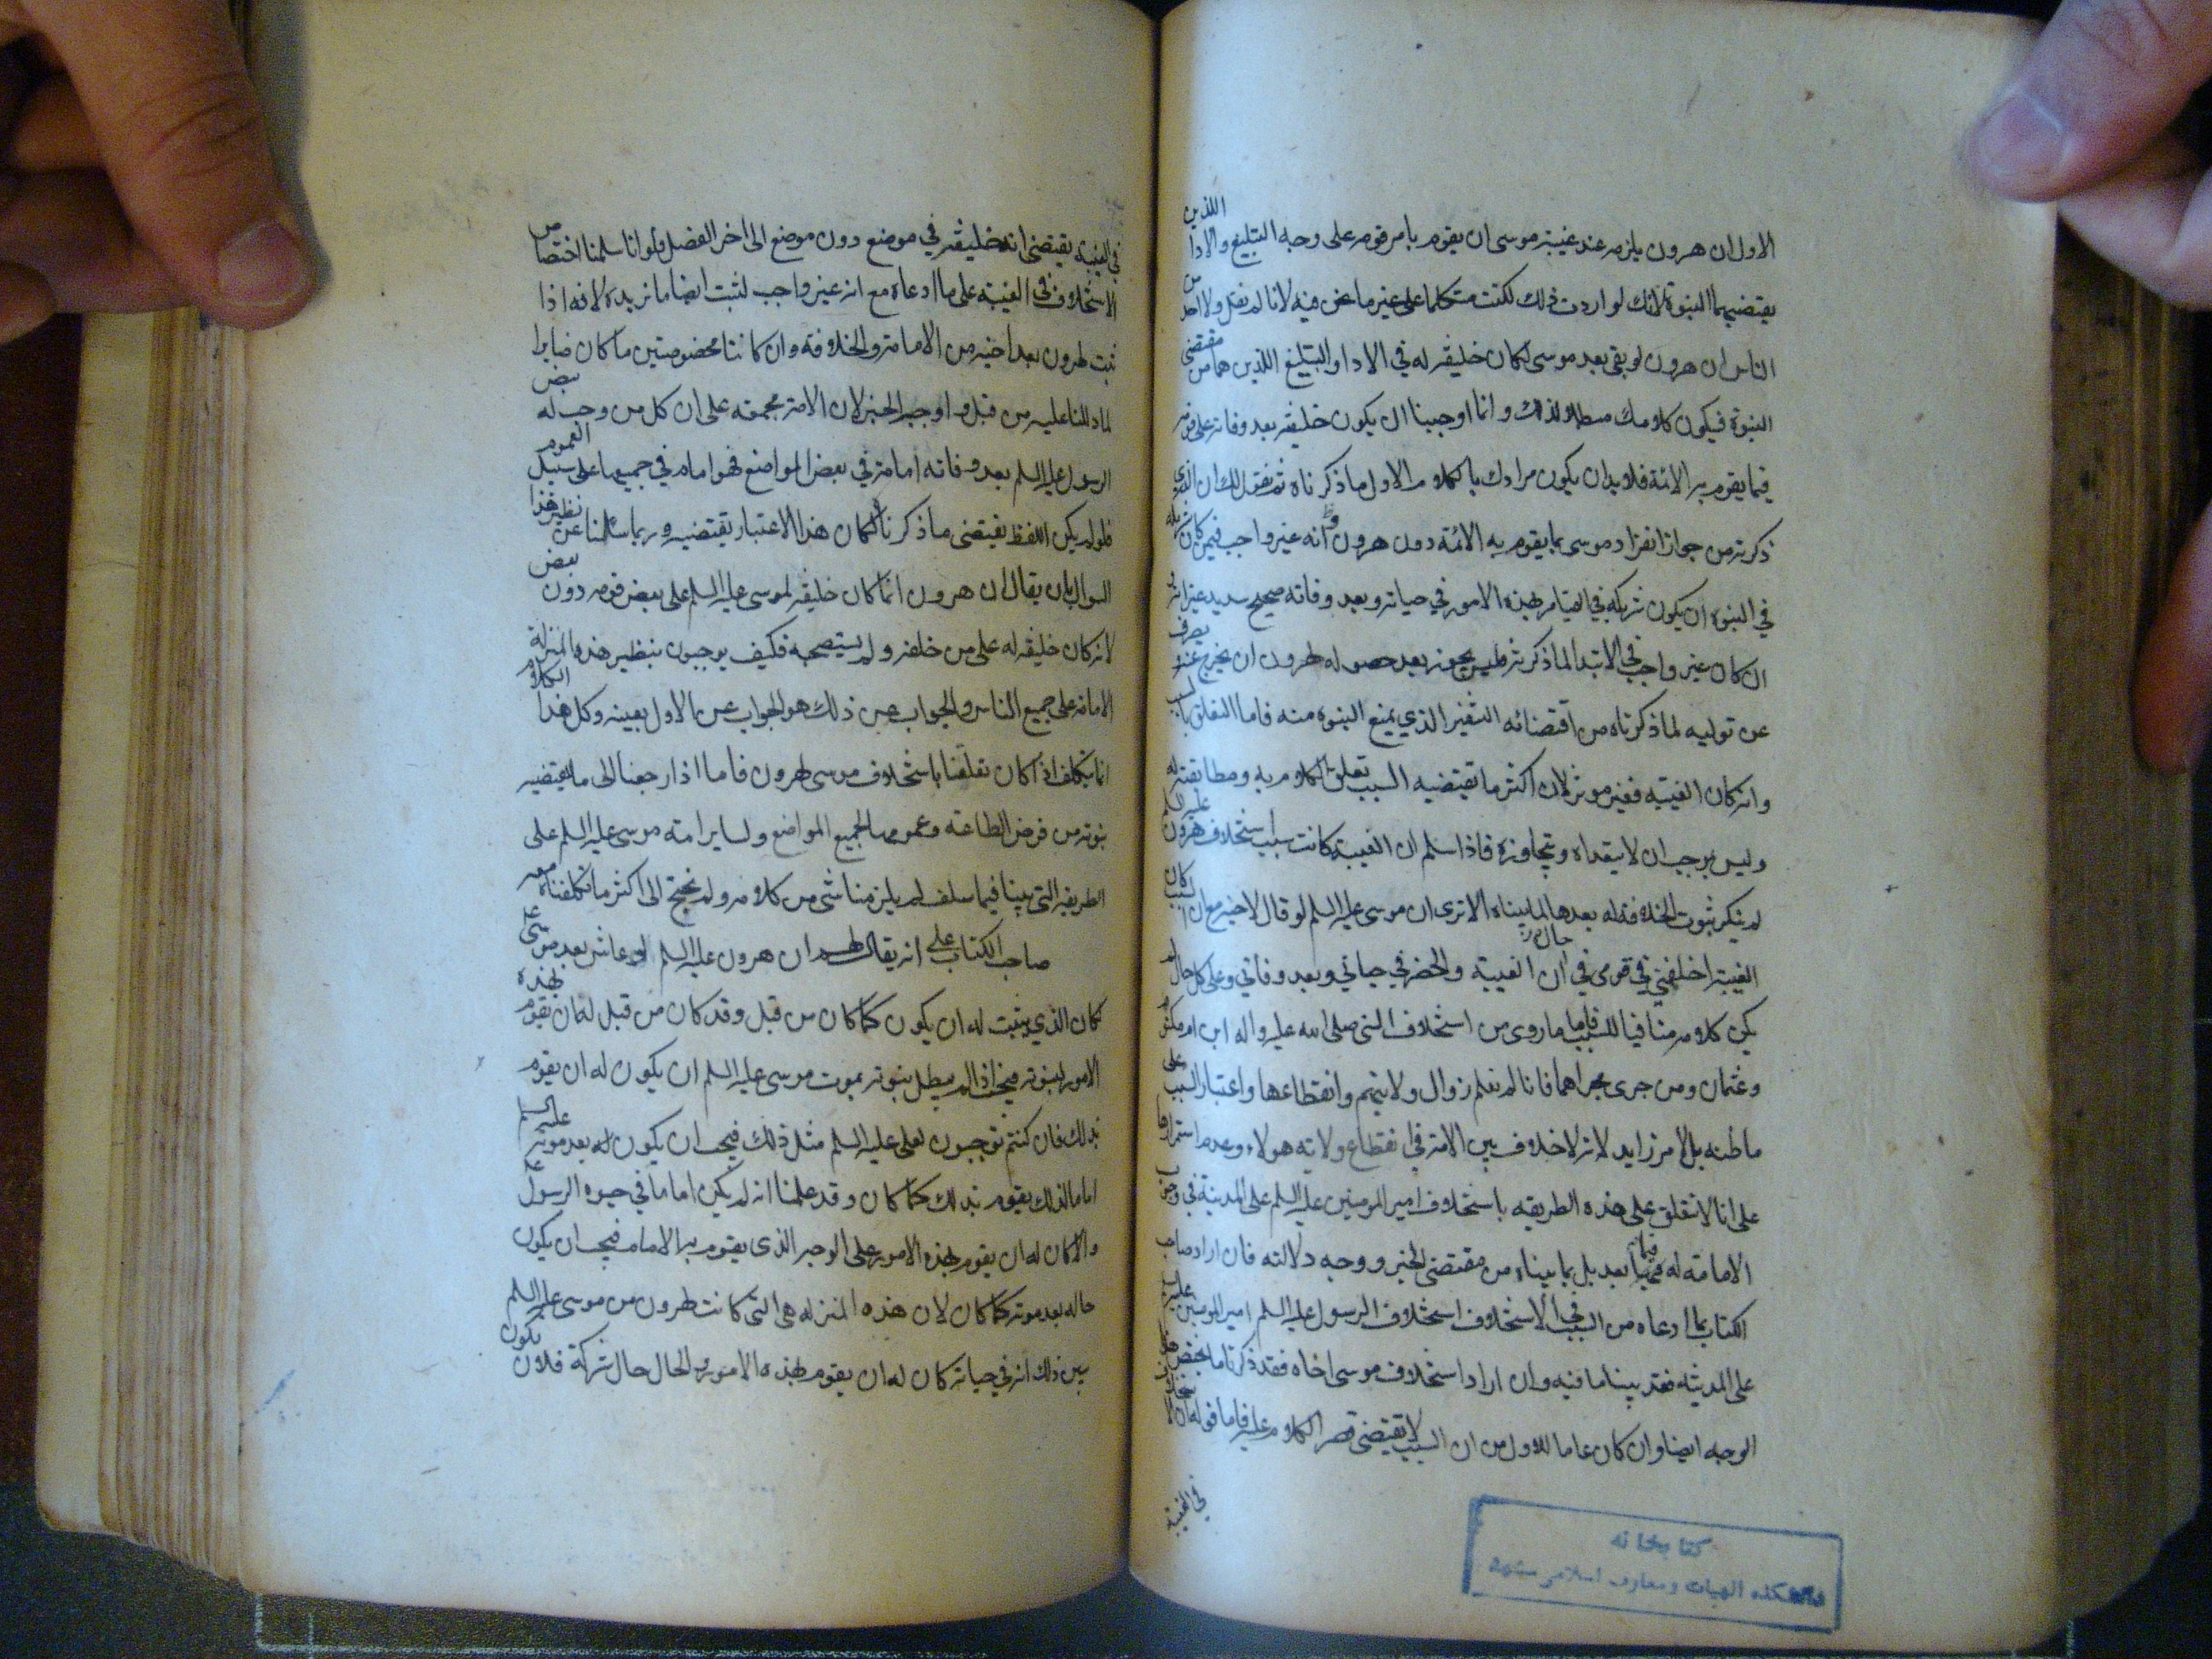 الاول ان هرون يلزمه عند غيبة موسى ان يقوم بامر قومه على وجه التبليغ والادا اللذين
يقتضيهما النبوة لانك لو اردت ذلك لكنت متكلما على غير ما نحن فيه لانا لم نقل ولا احد من
الناس ان هرون لو بقى بعد موسى لكان خليفة له في الادا والتبليغ اللذين هما من مقتضى
النبوة فيكون كلامك مبطلا لذلك وانما اوجبنا ان يكون خليفته بعد وفاته على قومه
فيما يقوم به الائمة فلا بد ان يكون مرادك بالكلام الاول ما ذكرناه ثم نقول لك ان الذي
ذكرته من جواز انفراد موسى بما يقوم به الائمة دون هرون وانه غير واجب فيمن كان شريكه
في النبوة ان يكون شريكه في القيام بهذه الامور في حياته وبعد وفاته صحيح سديد غير انه
ان كان غير واجب في الابتدا لما ذكرته فليس يجوز بعد حصوله لهرون ان يخرج عنه ويصرف
عن توليه لما ذكرناه من اقتضائه التنفير الذي يمنع النبوة منه فاما التعلق بالسبب
وانه كان الغيبة فغير موثر لان اكثر ما تقتضيه السبب تعلق الكلام به ومطابقته له
وليس يوجب ان لا يتعداه ويتجاوزه فاذا سلم ان الغيبة كانت سبب استخلاف هرون عليه السلم
لم ينكر ثبوت الخلافة له بعدها لما بيناه الا ترى ان موسى عليه السلم لو قال لاخيه مع ان السبب كان
الغيبة اخلفني في قومى في حال الغيبة والحضر في حياتي وبعد وفاتي وعلى كل حال لم
يكن كلامه منافيا للسبب فاما ما روى من استخلاف النبي صلى الله عليه واله ابن ام مكتوم
وعثمان ومن جرى مجراهما فانا لم نعلم زوال ولايتهم وانقطاعها واعتبار السبب على
ما ظنه بل لامر زايد لانه لا خلاف بين الامة في انقطاع ولاية هولاء وعدم استمرارها
على انا لا نتعلق على هذه الطريقه باستخلاف امير المومنين عليه السلم على المدينة في وجوب
الامامة له فيما بعد بل بما بيناه من مقتضى الخبر ووجه دلالته فان اراد صاحب
الكتاب بما ادعاه من السبب في الاستخلاف استخلاف الرسول عليه السلم امير المومنين عليه
على المدينة فقد بينا ما فيه وان اراد استخلاف موسى اخاه فقد ذكرنا ما يختص هذا
الوجه ايضا وان كان عاما للاول من ان السبب لا تقتضى قصر الكلام عليه فاما قوله ان الاستخلاف
في الغيبة
كتابخانه
دانشكده الهيات و معارف اسلامى مشهد
في الغيبة يقتضى انه خليفة في موضع دون موضع الى اخر الفصل فلو انا سلمنا اختصاص
الاستخلاف في الغيبة على ما ادعاه مع انه غير واجب لثبت ايضا ما نريده لانه اذا
ثبت لهرون بعد اخيه من الامامة والخلافة وان كانتا مخصوصتين ما كان ثابتا
لما دللنا عليه من قبل و اوجبه الخبر لان الامة مجمعه على ان كل من وجب له بنص
الرسول عليه السلم بعد وفاته امامة في بعض المواضع فهو امام في جميعها على سبيل العموم
فلو لم يكن اللفظ يقتضى ما ذكرناه لكان هذا الاعتبار يقتضيه وربما سالنا عن نظير هذا
السوال بان يقال ان هرون انما كان خليفة لموسى عليه السلم على بعض قومه دون بعض
لانه كان خليفة له على من خلفه ولم يستصحبه فكيف يوجبون بنظير هذه المنزلة
الامامة على جميع الناس والجواب عن ذلك هو الجواب عن الاول بعينه وكل هذا الكلام
انما يتكلف اذا كان تعلقنا باستخلاف موسى لهرون فاما اذا رجعنا الى ما يقتضيه
نبوته من فرض الطاعة وعمومها لجميع المواضع ولساير امة موسى عليه السلم على
الطريقه التي بينا فيما سلف لم يلزمنا شى من كلامه ولم نحتج الى اكثر ما تكلفناه معه
صاحب الكتاب على انه يقال لهم ان هرون عليه السلم لو عاش بعد موسى عليه
كان الذي يثبت له ان يكون كما كان من قبل وقد كان من قبل له ان يقوم بهذه
الامور لنبوته فيجب اذا لم يبطل نبوته بموت موسى عليه السلم ان يكون له ان يقوم
بذلك فان كنتم توجبون لعلى عليه السلم مثل ذلك فيجب ان يكون له بعد موته عليه السلم
اماما لذلك يقوم بذلك كما كان وقد علمنا انه لم يكن اماما في حيوه الرسول عليه
والا كان له ان يقوم بهذه الامور على الوجه الذي يقوم به الامام فيجب ان يكون
حاله بعد موته كما كان لان هذه المنزله هى التي كانت لهرون من موسى عليه السلم
يبين ذلك انه في حياته كان له ان يقوم بهذه الامور والحال حال شركة فلان يكون